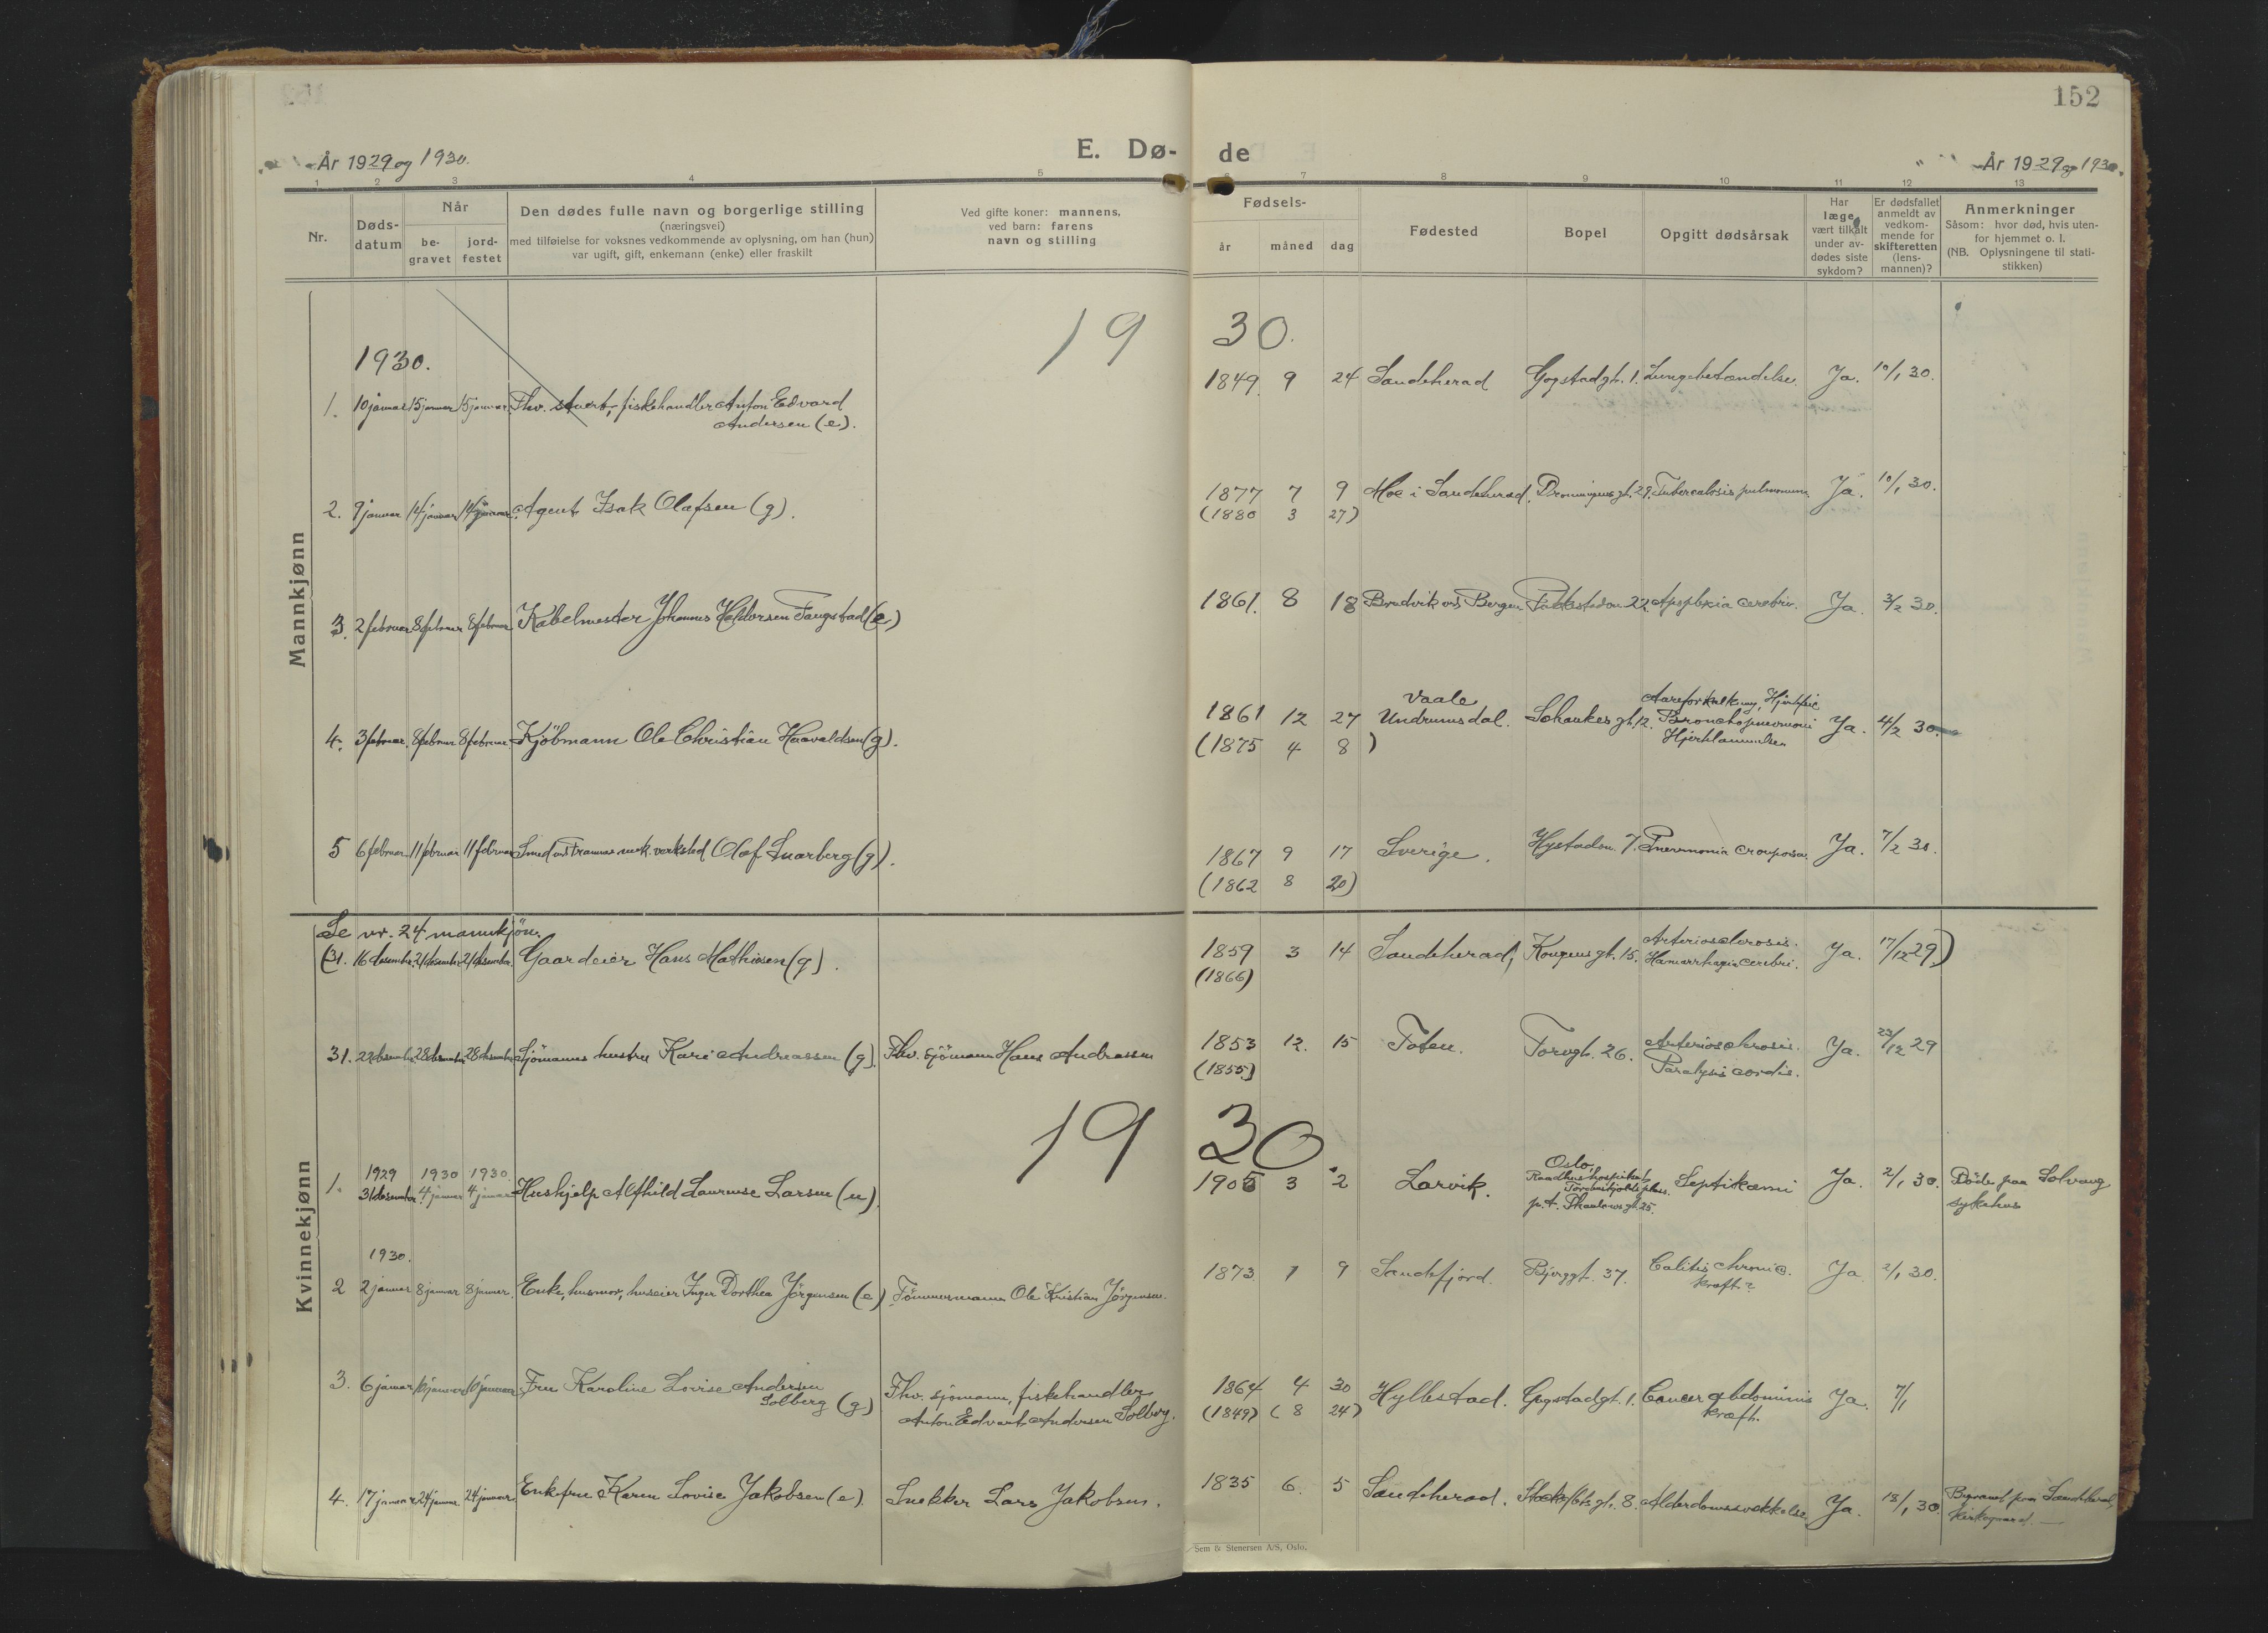 152
År 1929 og 1930.
E. Dø-
de
År 1929 og 1930.
1 2 3 4 5 6 7 8 9 10 11 12 13
Nr.
Døds-
datum
Når
be-
gravet
jord-
festet
Den dødes fulle navn og borgerlige stilling
(næringsvei)
med tilføielse for voksnes vedkommende av oplysning, om han (hun)
var ugift, gift, enkemann (enke) eller fraskilt
Ved gifte koner: mannens,
ved barn: farens
navn og stilling
Fødsels-
år måned dag
Fødested
Bopel
Opgitt dødsårsak
Har
læge
vært tilkalt
under av-
dødes siste
sykdom?
Er dødsfallet
anmeldt av
vedkom-
mende for
skifteretten
(lens-
mannen)?
Anmerkninger
Såsom: hvor død, hvis uten-
for hjemmet o. l.
(NB. Oplysningene til stati-
stikken)
Mannkjønn
1930.
1930.
1. 10 januar 15 januar 15 januar Fhv. fiskehandler Anton Edvard
Andersen (e).
1849 9 24 Sandeherad Gogstadgt. 1. Lungebetændelse. Ja. 10/1 30.
2. 9 januar 14 januar 14 januar Agent Isak Olafsen (g).
1877 7 9 Moe i Sandeherad. Dronningensgt. 29. Tuberculosis pulmonum. Ja. 10/1 30.
(1880 3 27)
3. 2 februar 8 februar 8 februar Kabelmester Johannes Haldorsen Faugstad (e)
1861. 8 18 Bredvik ved Bergen 22 Apoplexia cerebri. Ja. 3/2 30.
4. 3 februar 8 februar 8 februar Kjöbmann Ole Christian Haavaldsen (g).
1861 12 27 Vaale
Undrumsdal. Schankes gt. 12. Aareforkalkning,
Bronchopneumoni
Hjertelammelse
Ja. 4/2 30.
(1875 4 8)
5 6 februar 11 februar 11 februar Smed ved Framnæs mek. verksted Olaf Snarberg (g).
1867 9 17 Sverige. Hystadvn. 7. Pneumonia crouposa. Ja. 7/2 30.
(1862 8 20)
Kvinnekjønn
Se nr. 24 mannkjön.
(31. 16 desember 21 desember 21 desember Gaardeier Hans Mathisen (g).
1859 3 14 Sandeherad, Kongensgt. 15. Arteriosclerosis.
Hæmorrhagia cerebri. Ja. 17/12 29)
(1866)
31. 22 desember 28 desember 28 desember Sjömanns hustru Kari Andreassen (g). Fhv. sjömann Hans Andreassen
1853 12. 15 Toten. Torvgt. 26. Arteriosclerosis.
Paralysis cordis. Ja. 23/12 29
(1855)
1930
1. 1929
31 desember 1930
4 januar 1930.
4 januar Hushjelp Alfhild Laurense Larsen (u).
1905 3 2 Larvik. Oslo,
Raadhushospitset,
Tordenskjolds plass.
p.t. Thaulowsgt. 25. Septikæmi Ja. 2/1 30. Döde paa Solvang
sykehus
1930.
2 2 januar 8 januar 8 januar. Enke, husmor, huseier Inger Dorthea Jörgensen (e) Tömmermann Ole Kristian Jörgensen.
1873 1 9 Sandefjord. Bjerggt. 37. Colitis chronic.
kræft? Ja 2/1 30.
3. 6 januar 10 januar 10 januar Fru Karoline Lovise Andersen
Solberg (g) Fhv. sjömann, fiskehandler
Anton Edvard Andersen Solberg.
1864 4 30 Hyllestad. Gogstadgt. 1. Cancer abdominis
kræft. Ja. 7/1
(1849) (8 24)
4. 17 januar 24 januar 24 januar Enkefru Karen Lovise Jakobsen (e). Snekker Lars Jakobsen.
1835 6. 5 Sandeherad. 8. Alderdomssvekkelse. Ja. 18/1 30. Begravet paa Sandeherad
kirkegaard.
Sem & Stenersen A/S, Oslo.